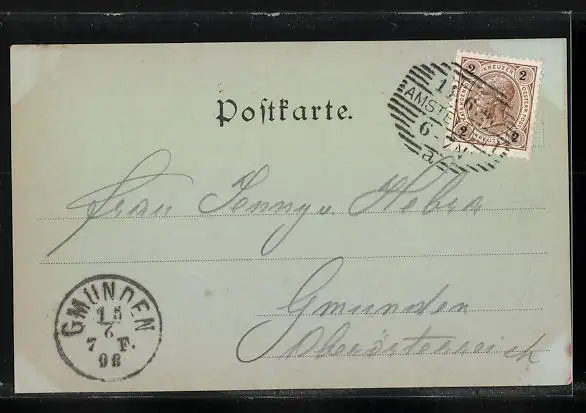 Postkarte.
2 KREUZER 2
2 2
AMSTE
6-
a
Frau Jenny v. Hebra
Gmunden
Oberösterreich
GMUNDEN
15
6
7 F.
98